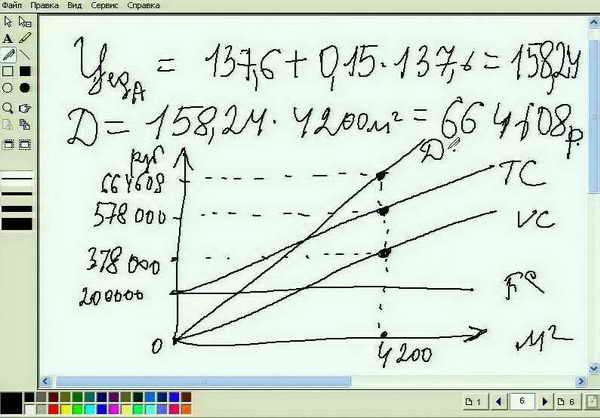 Файл Правка Вид Сервис Справка
Цед А = 137,6 + 0,15 · 137,6 = 158,24
Д = 158,24 · 4200 м² = 664608 р.
руб
Д
664608
TC
578 000
VC
378 000
200000
FC
0
4200
м²
1
6
6